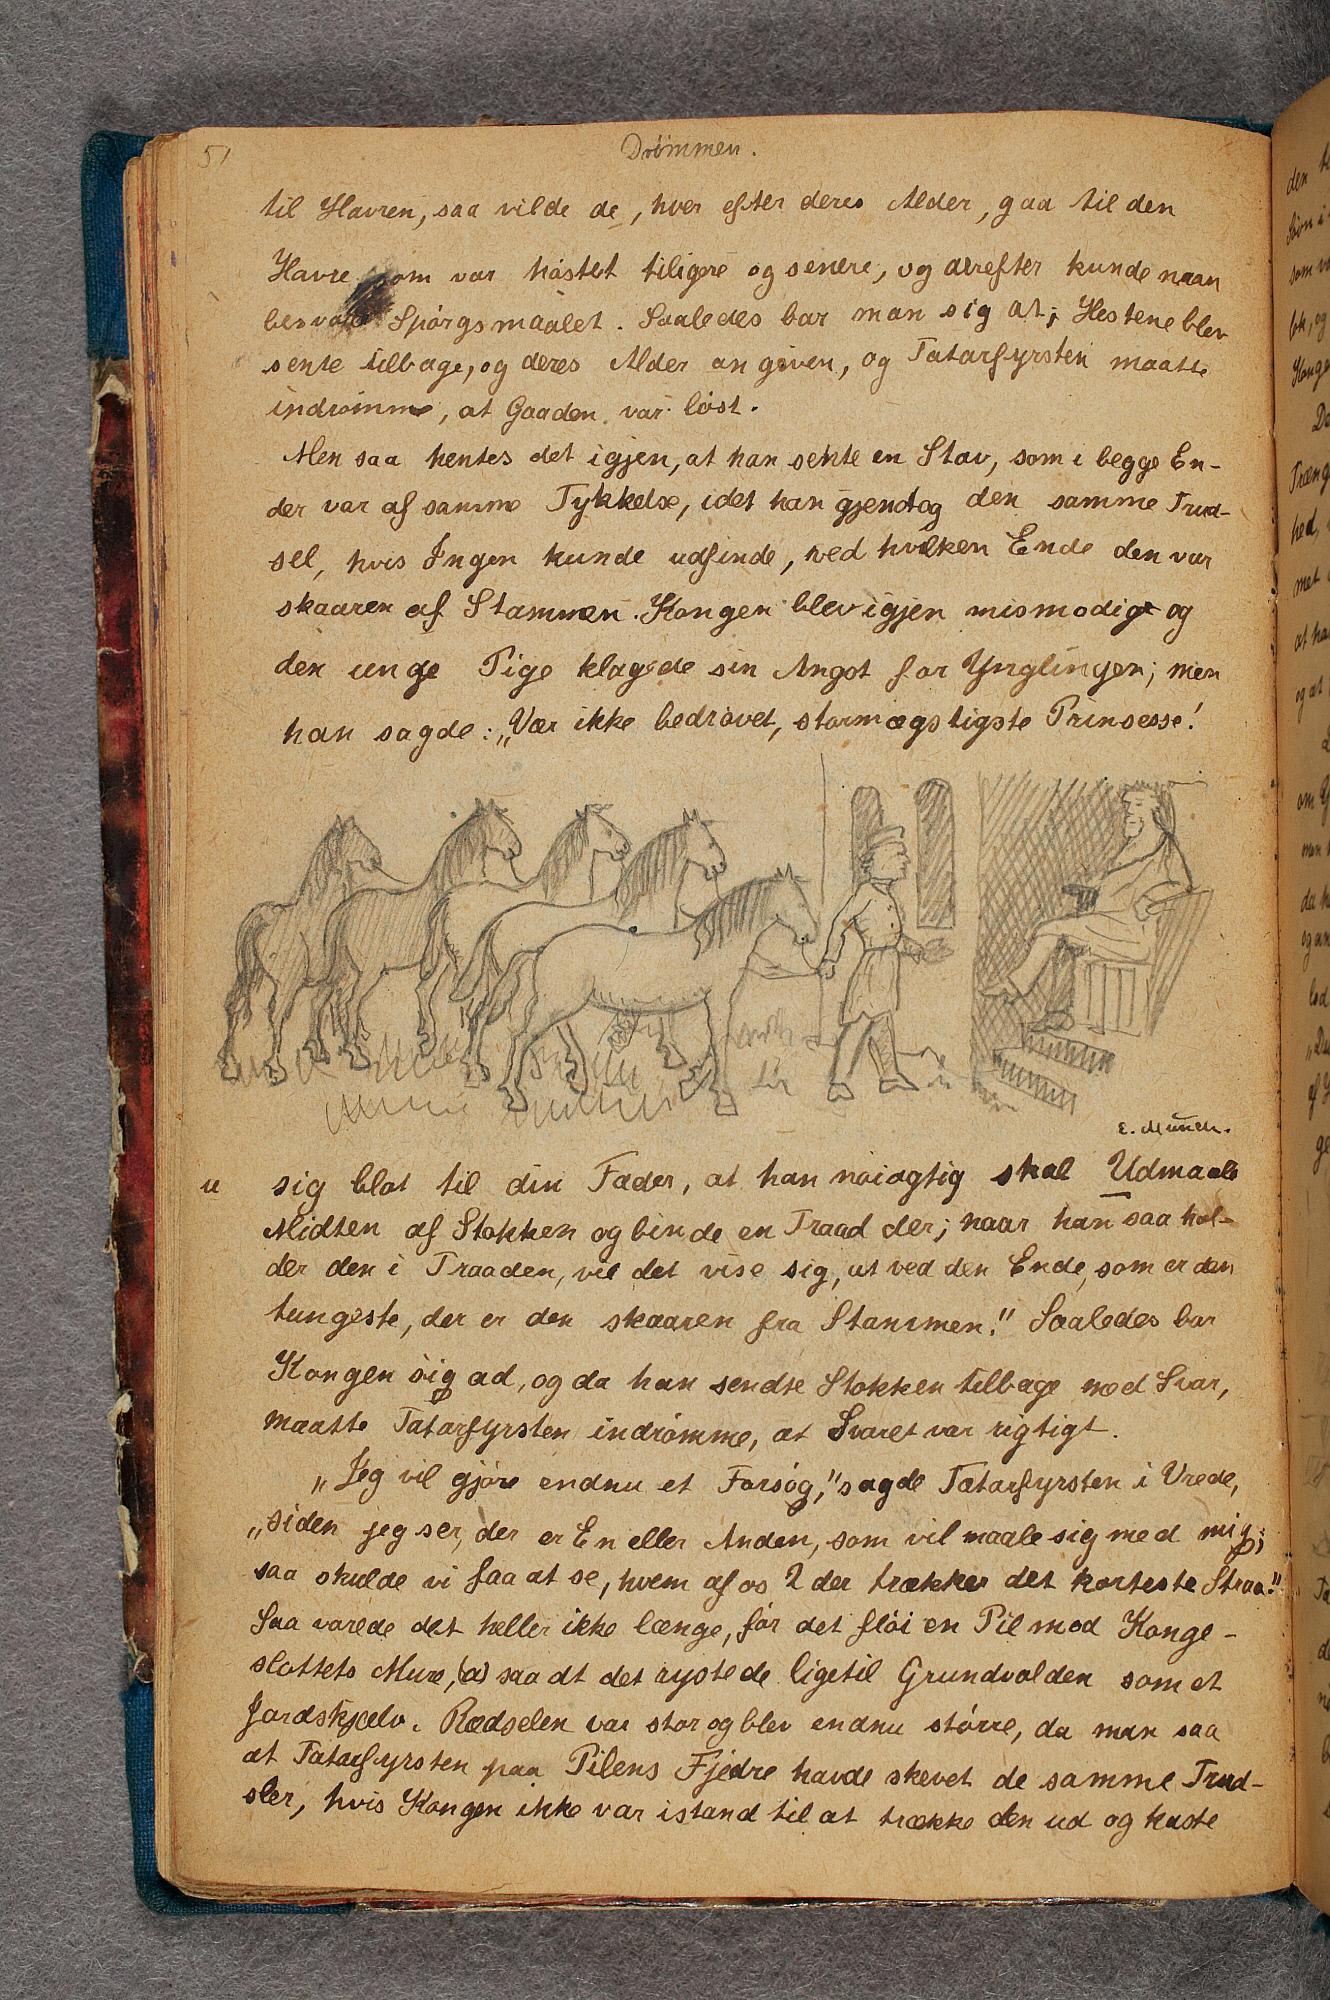 51
Drömmen.
til Havren, saa vilde de, hver efter deres Alder, gaa til den
Havre som var høstet tiligere og senere, og derefter kunde man
besvare Spörgsmaalet. Saaledes bar man sig at; Hestene blev
sente tilbage, og deres Alder angiven, og Tatarfyrsten maatte
indrømme, at Gaaden var löst.
Men saa hentes det igjen, at han sente en Stav, som i begge En-
der var af samme Tykkelse, idet han gjentog den samme Trud-
sel, hvis Ingen kunde udfinde, ved hvilken Ende den var
skaaren af Stammen. Kongen blev igjen mismodig og
den unge Pige klagede sin Angst for Ynglingen; men
han sagde: „Vær ikke bedrøvet, stormægstigste Prinsesse!
E. Munch.
u sig blot til din Fader, at han nøiagtig skal Udmaale
Midten af Stokken og binde en Traad der; naar han saa hol-
der den i Traaden, vil det vise sig, at ved den Ende, som er den
tungeste, der er den skaaren fra Stammen." Saaledes bar
Kongen sig ad, og da han sendte Stokken tilbage med Svar,
maatte Tatarfyrsten indrømme, at Svaret var rigtigt.
„Jeg vil gjøre endnu et Forsøg," sagde Tatarfyrsten i Vrede,
„siden jeg ser, der er En eller Anden, som vil maale sig med mig;
saa skulde vi faa at se, hvem af os 2 der trækker det korteste Straa."
Saa varede det heller ikke længe, før det fløi en Pil mod Konge-
slottets Mure, (a) saa at det rystede ligetil Grundvolden som et
Jordskjælv. Rædselen var stor og blev endnu större, da man saa
at Tatarfyrsten paa Pilens Fjedre havde skevet de samme Trud-
sler, hvis Kongen ikke var istand til at trække den ud og kaste